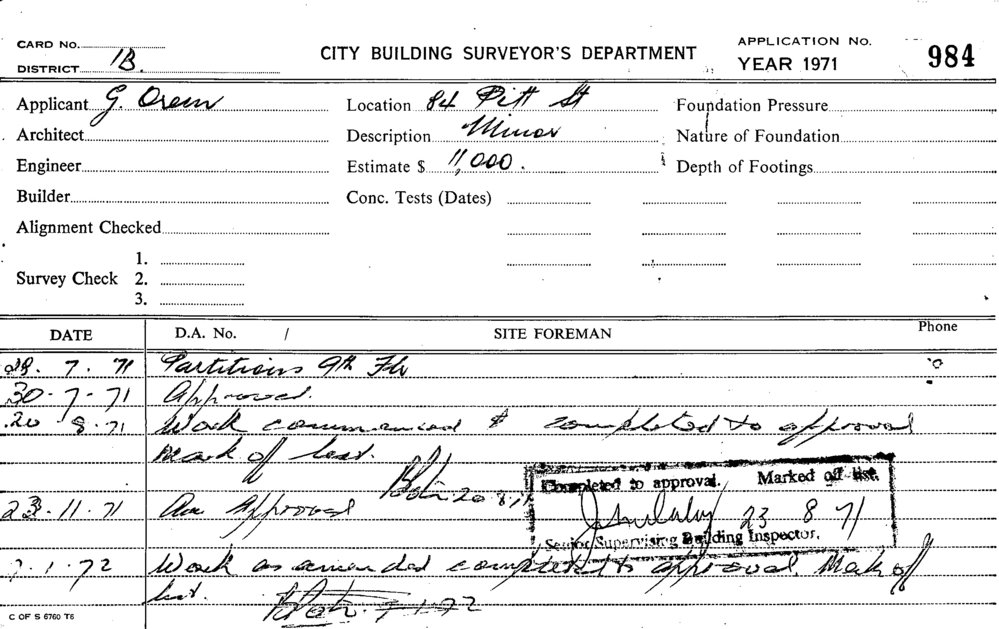 CARD No.
DISTRICT 1B.
CITY BUILDING SURVEYOR'S DEPARTMENT
APPLICATION No.
YEAR 1971
984
Applicant G. Orem Location 84 Pitt St Foundation Pressure
Architect Description Minor Nature of Foundation
Engineer Estimate $ 11,000. Depth of Footings
Builder Conc. Tests (Dates)
Alignment Checked
1.
Survey Check 2.
3.
DATE D.A. No. / SITE FOREMAN Phone
29. 7. 71 Partitions 9th Flr
30-7-71 Approved.
20 8.71 Work commenced & completed to approval
Mark of last.
20 8 71
Completed to approval. Marked off list.
23-11-71 Am Approved
23 8 71
Senior Supervising Building Inspector.
7.1.72 Work as amended completed to approval Mark of
last. 7 1 72
C OF S 6760 T6